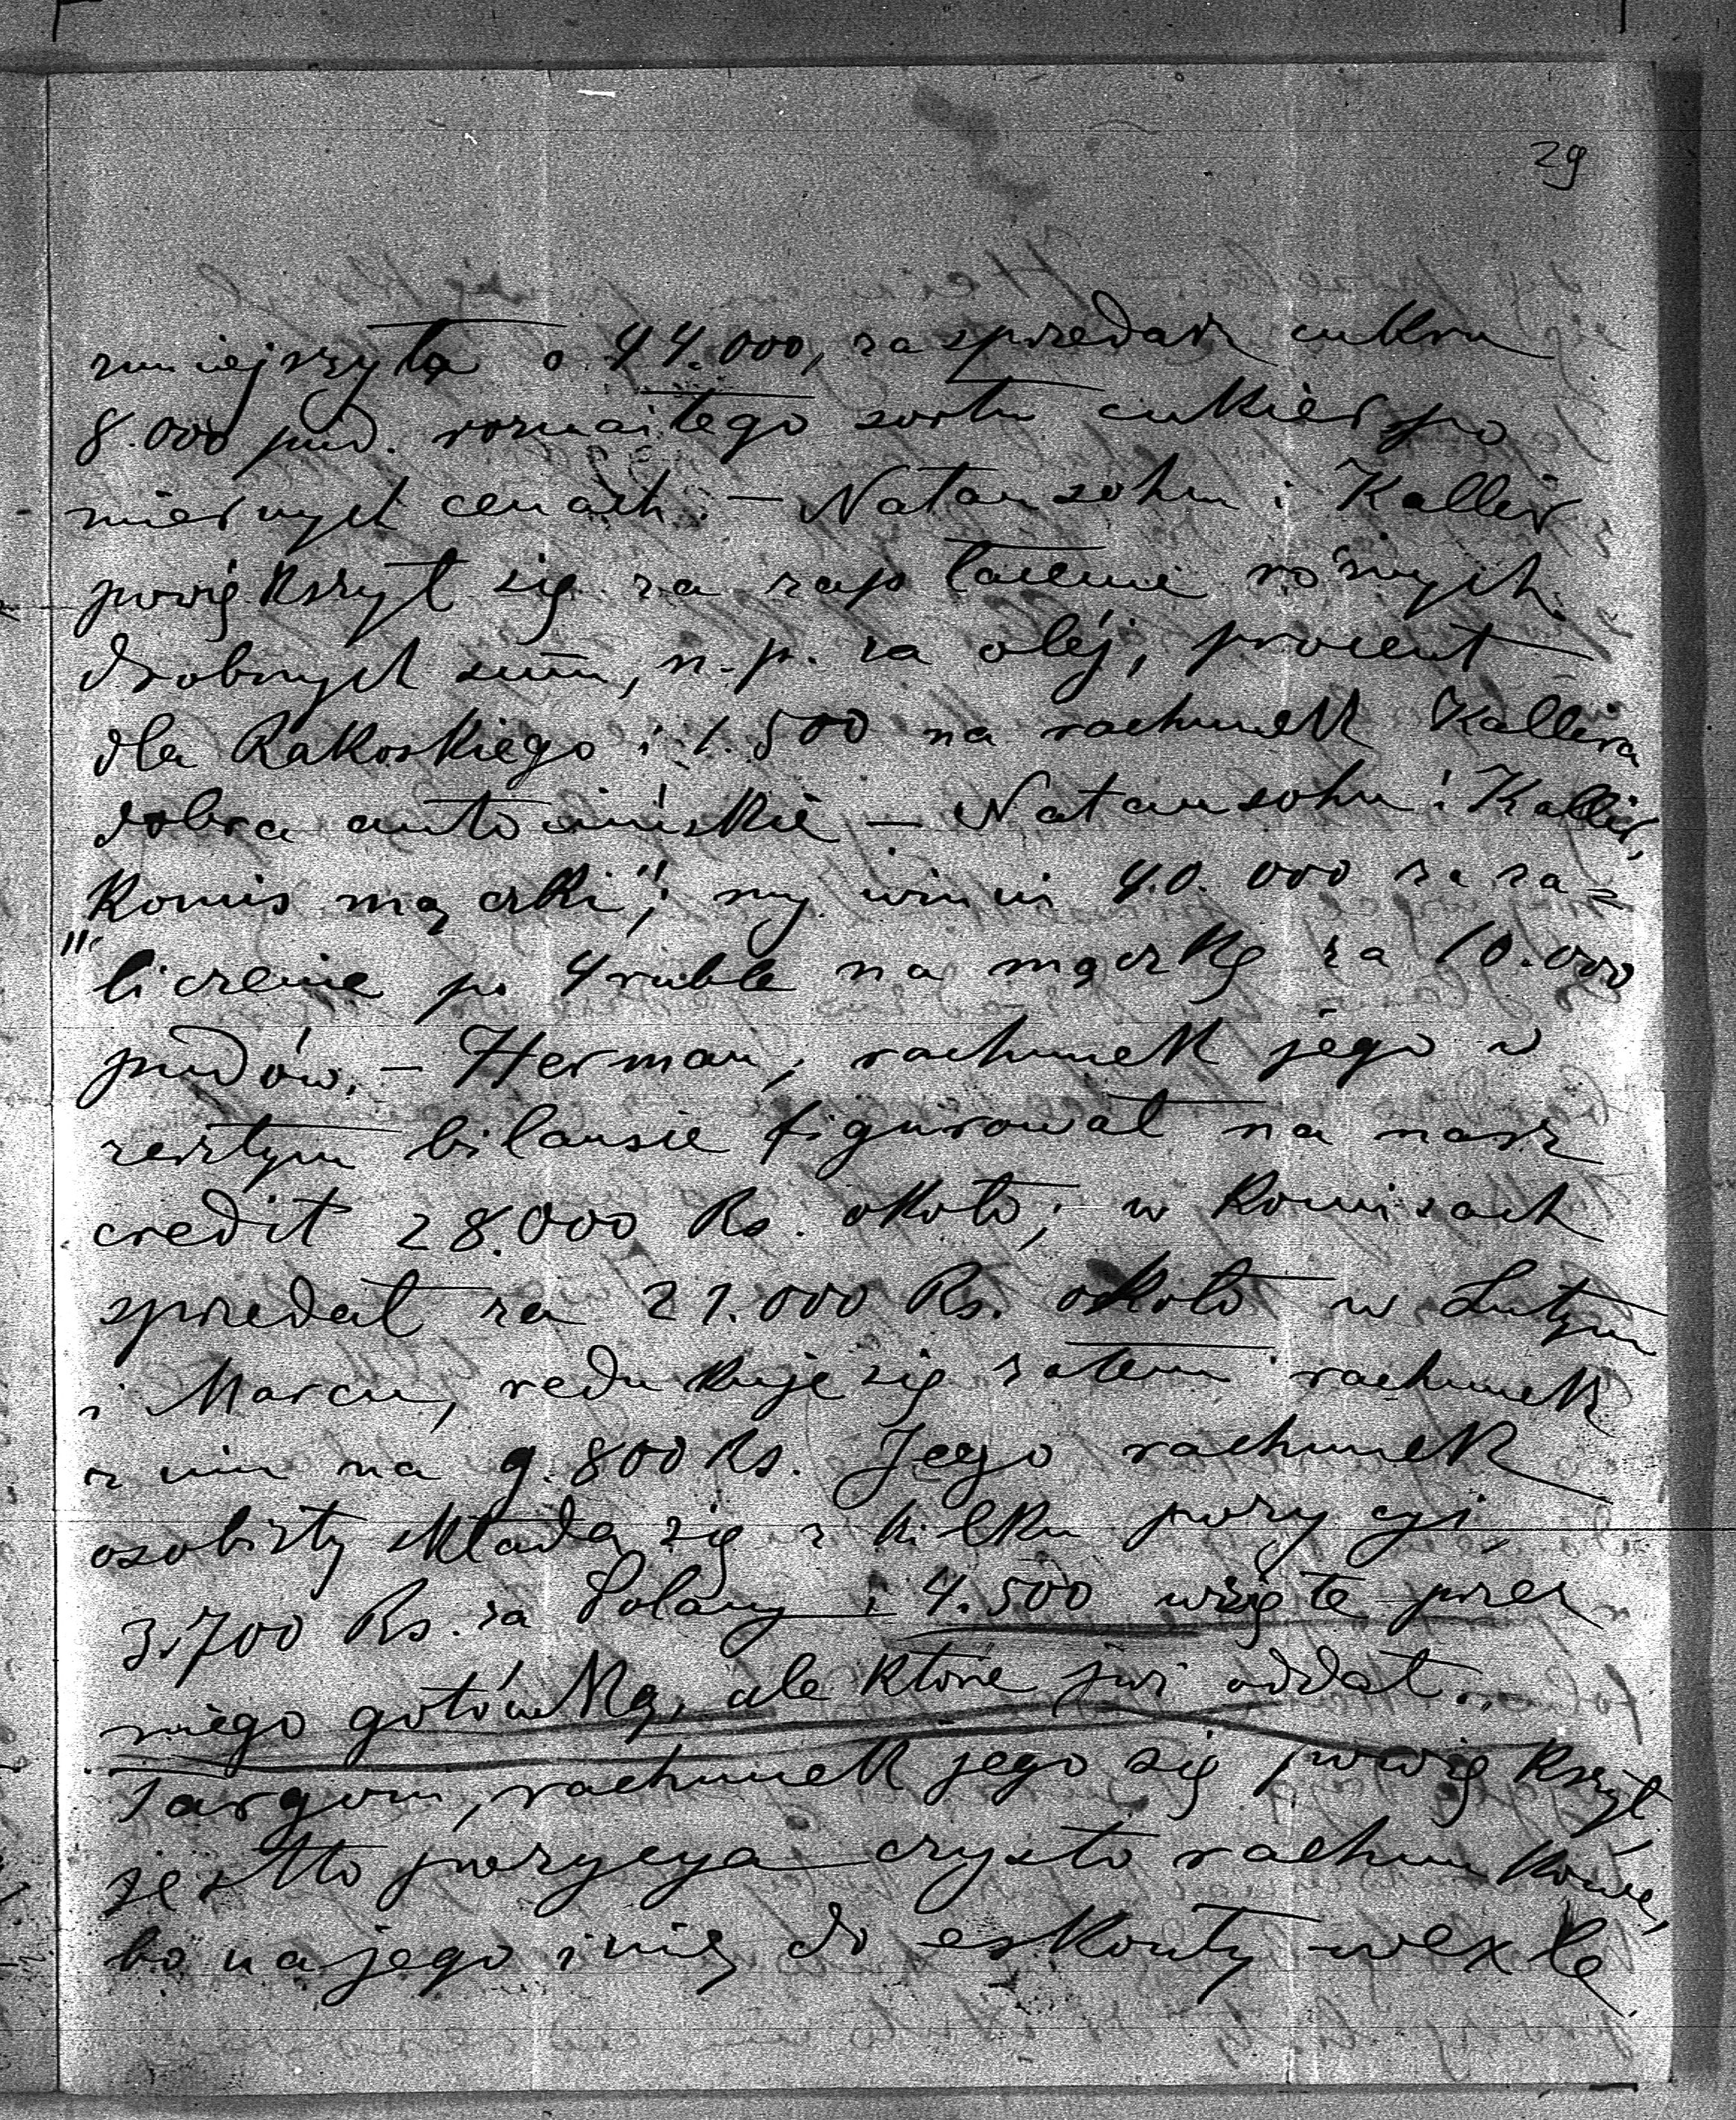 29
zmniejszyła o 44.000, za sprzedaż cukru
8.000 pud. rozmaitego sortu cukier po
miernych cenach. — Natansohn i Kallir
powiększył się za zapłacenie różnych
drobnych sum, n.p. za oléj, procent
dla Rakoskiego i 1.500 na rachunek Kallira
dobra antonińskie — Natansohn i Kallir,
"Komis mączki"; my winni 40.000 za za=
liczenie po 4 ruble na mączkę za 10.000
pudów. — Herman, rachunek jego w
zeszłym bilansie figurował na nasz
credit 28.000 Rs. około; w Komisach
sprzedał za 21.000 Rs. około w Lutym
i Marcu, redukuje się zatem rachunek
z nim na 9.800 Rs. Jego rachunek
osobisty składa się z kilku pozycyi,
3.700 Rs. za Polany i 4.500 wzięte przez
niego gotówką, ale które już oddał.
Targom, rachunek jego się powiększył
jestto pozycya czysto rachunkowa,
bo na jego imię do eskonty wexle